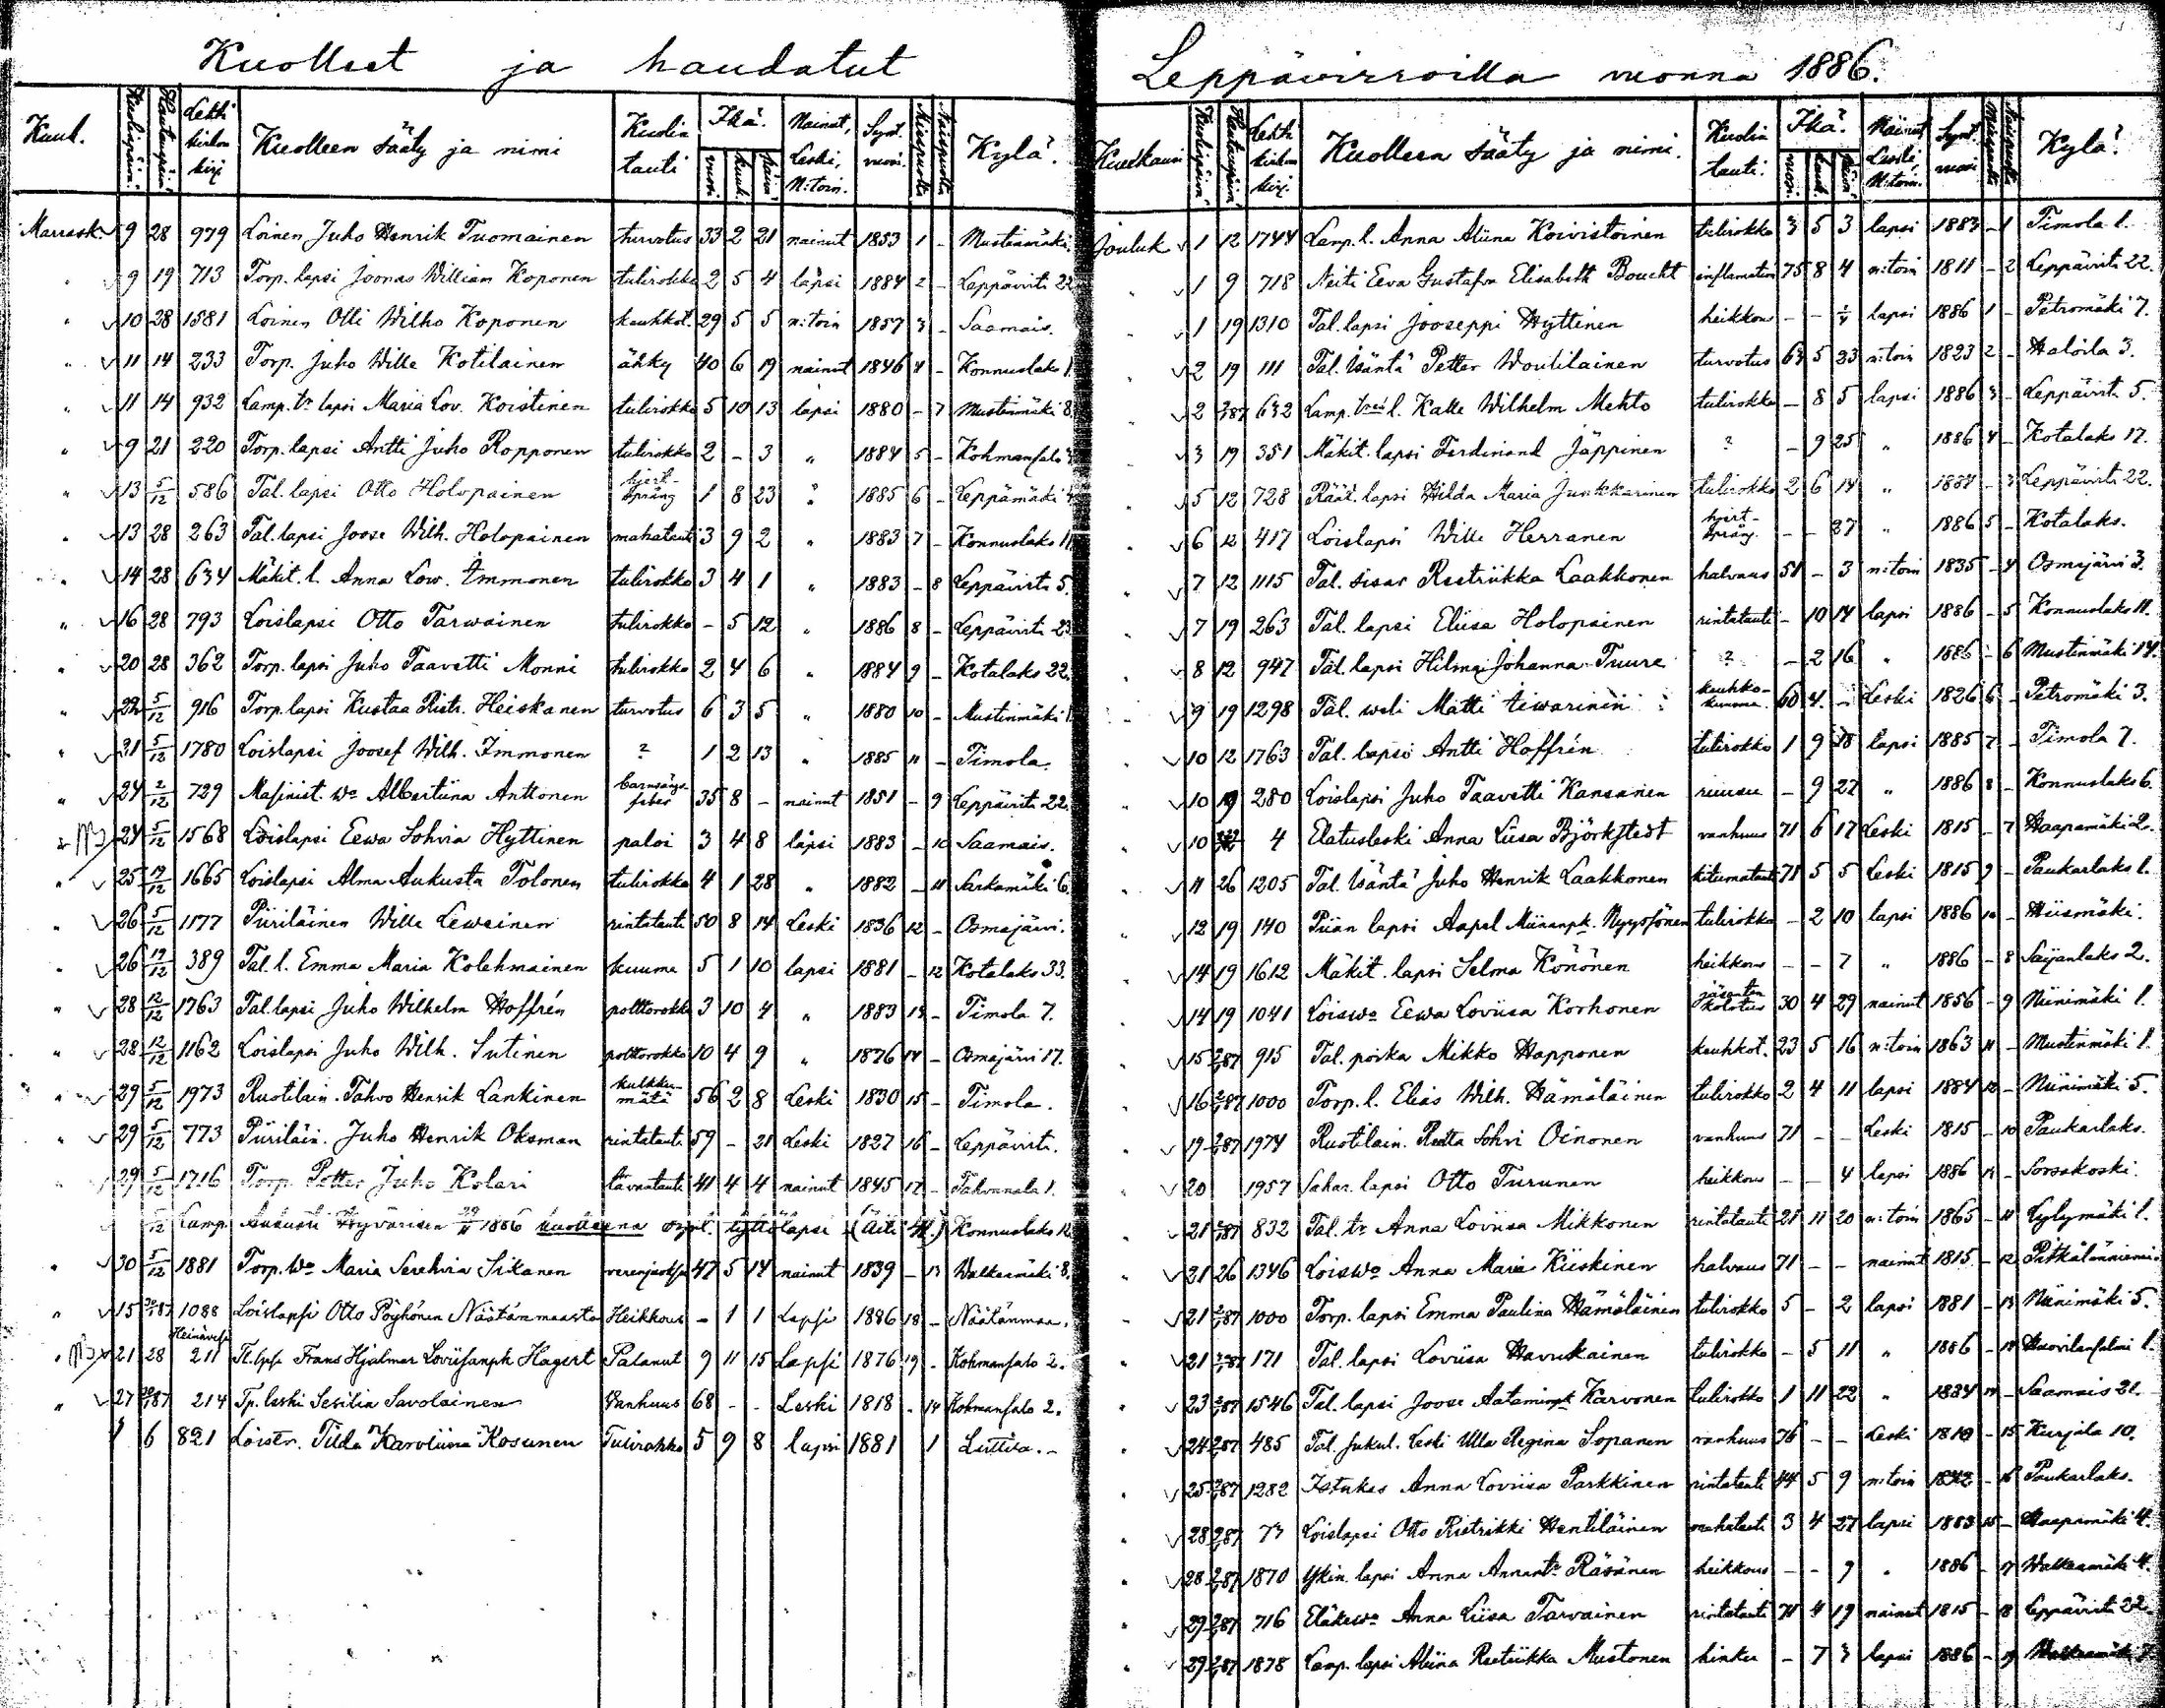 Kuolleet ja haudatut
Kuuk. Kuolinpäivä. Hautauspäivä. Lehti kirkon kirj. Kuolleen sääty ja nimi Kuolin tauti Ikä. vuosi. kuuk. päivä. Nainut, Leski, N:toin. Synt. vuosi. Miespuolta Naispuolta Kylä.
Marrask. 9 28 979 Loinen Juho Henrik Tuomainen turvotus 33 2 21 nainut 1853 1 - Mustinmäki
" 9 19 713 Torp. lapsi Joonas William Koponen tulirokko 2 5 4 lapsi 1884 2 - Leppävirt. 22
" 10 28 1581 Loinen Olli Wilho Koponen keuhkot. 29 5 5 n:toin 1857 3 - Saamais.
" 11 14 233 Torp. Juho Wille Kotilainen ähky 40 6 19 nainut 1846 4 - Konnuslaks 1.
" 11 14 932 Lamp. tr lapsi Maria Lov. Koistinen tulirokko 5 10 13 lapsi 1880 - 7 Mustinmäki 8.
" 9 21 220 Torp. lapsi Antti Juho Ropponen tulirokko 2 - 3 " 1884 5 - Kohmansalo
" 13 5/12 586 Tal. lapsi Otto Holopainen hjertspräng 1 8 23 " 1885 6 - Leppämäki
" 13 28 263 Tal. lapsi Joose Wilh. Holopainen mahatauti 3 9 2 " 1883 7 - Konnuslaks 11
" 14 28 634 Mäkit. l. Anna Low. Immonen tulirokko 3 4 1 " 1883 - 8 Leppävirt. 5.
" 16 28 793 Loislapsi Otto Tarwainen tulirokko - 5 12 " 1886 8 - Leppävirt. 23
" 20 28 362 Torp. lapsi Juho Taavetti Monni tulirokko 2 4 6 " 1884 9 - Kotalaks 22.
" 22 5/12 916 Torp. lapsi Kustaa Ristr. Heiskanen turvotus 6 3 5 " 1880 10 - Mustinmäki 1.
" 21 5/12 1780 Loislapsi Joosef Wilh. Immonen ? 1 2 13 " 1885 11 - Timola.
" 24 2/12 729 Masinist. wo Albertiina Anttonen barnsängsfeber 35 8 - nainut 1851 - 9 Leppävirt. 22.
" 24 5/12 1568 Loislapsi Eewa Sohvia Hyttinen paloi 3 4 8 lapsi 1883 - 10 Saamais.
" 25 19/12 1665 Loislapsi Alma Aukusta Tolonen tulirokko 4 1 28 " 1882 - 11 Sarkamäki 6.
" 26 5/12 1177 Piiriläinen Wille Leweinen rintatauti 50 8 14 Leski 1836 12 - Osmajärvi.
" 26 19/12 389 Tal. l. Emma Maria Kolehmainen kuume 5 1 10 lapsi 1881 - 12 Kotalaks 33.
" 28 12/12 1763 Tal. lapsi Juho Wilhelm Hoffrén polttorokko 3 10 4 " 1883 13 - Timola 7.
" 28 12/12 1162 Loislapsi Juho Wilh. Sutinen polttorokko 10 4 9 " 1876 14 - Osmajärvi 17.
" 29 5/12 1973 Ruotilain. Tahvo Henrik Lankinen kulkkumätä 56 2 8 Leski 1830 15 - Timola.
" 29 5/12 773 Piiriläin. Juho Henrik Oksman rintatauti 59 - 21 Leski 1827 16 - Leppävirt.
" 29 5/12 1716 Torp. Petter Juho Kolari lavantauti 41 4 4 nainut 1845 17 - Tahvonala 1.
5/12 Lamp. Aukusti Hyvärisen 29/11 1886 kuolleena synt. tyttölapsi (Äiti 41.) Konnuslaks 12
" 30 5/12 1881 Torp. wo Maria Serehvia Sikanen verenjuoksu 47 5 14 nainut 1839 - 13 Walkeamäki 8.
" 15 1088 Loislapsi Otto Pöyhönen Näätänmaasta Heikkous - 1 1 Lapsi 1886 18 - Näätänmaa.
Heinävesi
" 21 28 211 Tl. lpsi Frans Hjalmar Loviisanpk Hagert Palanut 9 11 15 Lapsi 1876 19 - Kohmansalo 2.
" 27 214 Tp. leski Sesilia Savolainen Vanhuus 68 - - Leski 1818 - 14 Kohmansalo 2.
1 6 821 Loistr. Tilda Karoliina Kosunen Tulirokko 5 9 8 lapsi 1881 1 Luttila. -
Leppävirroilla vuonna 1886.
Kuukausi Kuolinpäivä. Hautauspäivä. Lehti kirkon kirj. Kuolleen sääty ja nimi. Kuolin tauti. Ikä. vuosi. kuuk. päivä. Nainut Leski N:toin. Synt. vuosi Miespuolta Naispuolta Kylä.
Jouluk 1 12 1744 Lamp. l. Anna Aliina Koivistoinen tulirokko 3 5 3 lapsi 1883 - 1 Timola 1.
" 1 9 718 Neiti Eeva Gustafva Elisabeth Boucht inflamation 75 8 4 n:toin 1811 - 2 Leppävirt. 22.
" 1 19 1310 Tal. lapsi Jooseppi Hyttinen heikkous - - 1/4 lapsi 1886 1 - Petromäki 7.
" 2 19 111 Tal. isäntä Petter Woutilainen turvotus 63 5 23 n:toin 1823 2 - Haloila 3.
" 2 632 Lamp. l. Kalle Wilhelm Mehto tulirokko - 8 5 lapsi 1886 3 - Leppävirt. 5.
" 3 19 351 Mäkit. lapsi Ferdinand Jäppinen ? - 9 25 " 1886 4 - Kotalaks 17.
" 5 12 728 Räät. lapsi Hilda Maria Junkkarinen tulirokko 2 6 14 " 1884 - 3 Leppävirt. 22.
" 6 12 417 Loislapsi Wille Herranen hjertspräng. - - 27 " 1886 5 - Kotalaks.
" 7 12 1115 Tal. sisar Reetriikka Laakkonen halvaus 51 - 3 n:toin 1835 - 4 Osmajärvi 3.
" 7 19 263 Tal. lapsi Eliisa Holopainen rintatauti - 10 14 lapsi 1886 - 5 Konnuslaks 11.
" 8 12 947 Tal. lapsi Hilma Johanna Tuure ? - 2 16 " 1886 - 6 Mustinmäki 14.
" 9 19 1298 Tal. weli Matti Tiwarinen keuhkokuume. 60 4 - Leski 1826 6 - Petromäki 3.
" 10 12 1763 Tal. lapsi Antti Hoffrén tulirokko 1 9 18 lapsi 1885 7 - Timola 7.
" 10 19 280 Loislapsi Juho Taavetti Kansanen ruusu - 9 27 " 1886 8 - Konnuslaks 6.
" 10 4 Elatusleski Anna Liisa Björkstedt vanhuus 71 6 17 Leski 1815 - 7 Haapamäki 2.
" 11 26 1205 Tal. isäntä Juho Henrik Laakkonen kitumatauti 71 5 5 Leski 1815 9 - Paukarlaks 1.
" 12 19 140 Piian lapsi Aapel Miinanpk. Nyyssönen tulirokko - 2 10 lapsi 1886 10 - Hiismäki.
" 14 19 1612 Mäkit. lapsi Selma Könönen heikkous - - 7 " 1886 - 8 Saijanlaks 2.
" 14 19 1041 Loiswo Eewa Loviisa Korhonen jäsenten kolotus 30 4 29 nainut 1856 - 9 Niinimäki 1.
" 15 915 Tal. poika Mikko Happonen keuhkot. 23 5 16 n:toin 1863 11 - Mustinmäki 1.
" 16 1000 Torp. l. Elias Wilh. Hämäläinen tulirokko 2 4 11 lapsi 1884 12 - Niinimäki 5.
" 19 1974 Ruotilain. Reetta Sohvi Oinonen vanhuus 71 - - Leski 1815 - 10 Paukarlaks.
" 20 1957 Sahar. lapsi Otto Turunen heikkous - - 4 lapsi 1886 13 - Sorsakoski.
" 21 832 Tal. tr Anna Loviisa Mikkonen rintatauti 21 11 20 n:toin 1865 - 11 Lylymäki 1.
" 21 26 1346 Loiswo Anna Maria Kiiskinen halvaus 71 - - nainut 1815 - 12 Pitkälänniemi.
" 21 1000 Torp. lapsi Emma Paulina Hämäläinen tulirokko 5 - 2 lapsi 1881 - 13 Niinimäki 5.
" 21 171 Tal. lapsi Loviisa Havukainen tulirokko - 5 11 " 1886 - 14 1.
" 23 1546 Tal. lapsi Joose Aataminpk Karvonen tulirokko 1 11 22 " 1884 14 - Saamais 21.
" 24 485 Tal. Leski Ulla Regina Sopanen vanhuus 76 - - Leski 1810 - 15 Kurjala 10.
" 25 1282 Istukas Anna Loviisa Parkkinen rintatauti 44 5 9 n:toin 1842 - 16 Paukarlaks.
" 28 73 Loislapsi Otto Ristrikki Hentiläinen mahatauti 3 4 27 lapsi 1883 15 - Haapamäki 4.
" 28 1870 Itsin. lapsi Anna Annantr Räsänen heikkous - - 9 " 1886 - 17 Walkeamäki 4.
" 29 716 Eläkewo Anna Liisa Tarvainen rintatauti 71 4 19 nainut 1815 - 18 Leppävirt. 22.
" 29 1878 Lamp. lapsi Aliina Reetriikka Mustonen hinku - 7 3 lapsi 1886 - 19 Walkeamäki 7.